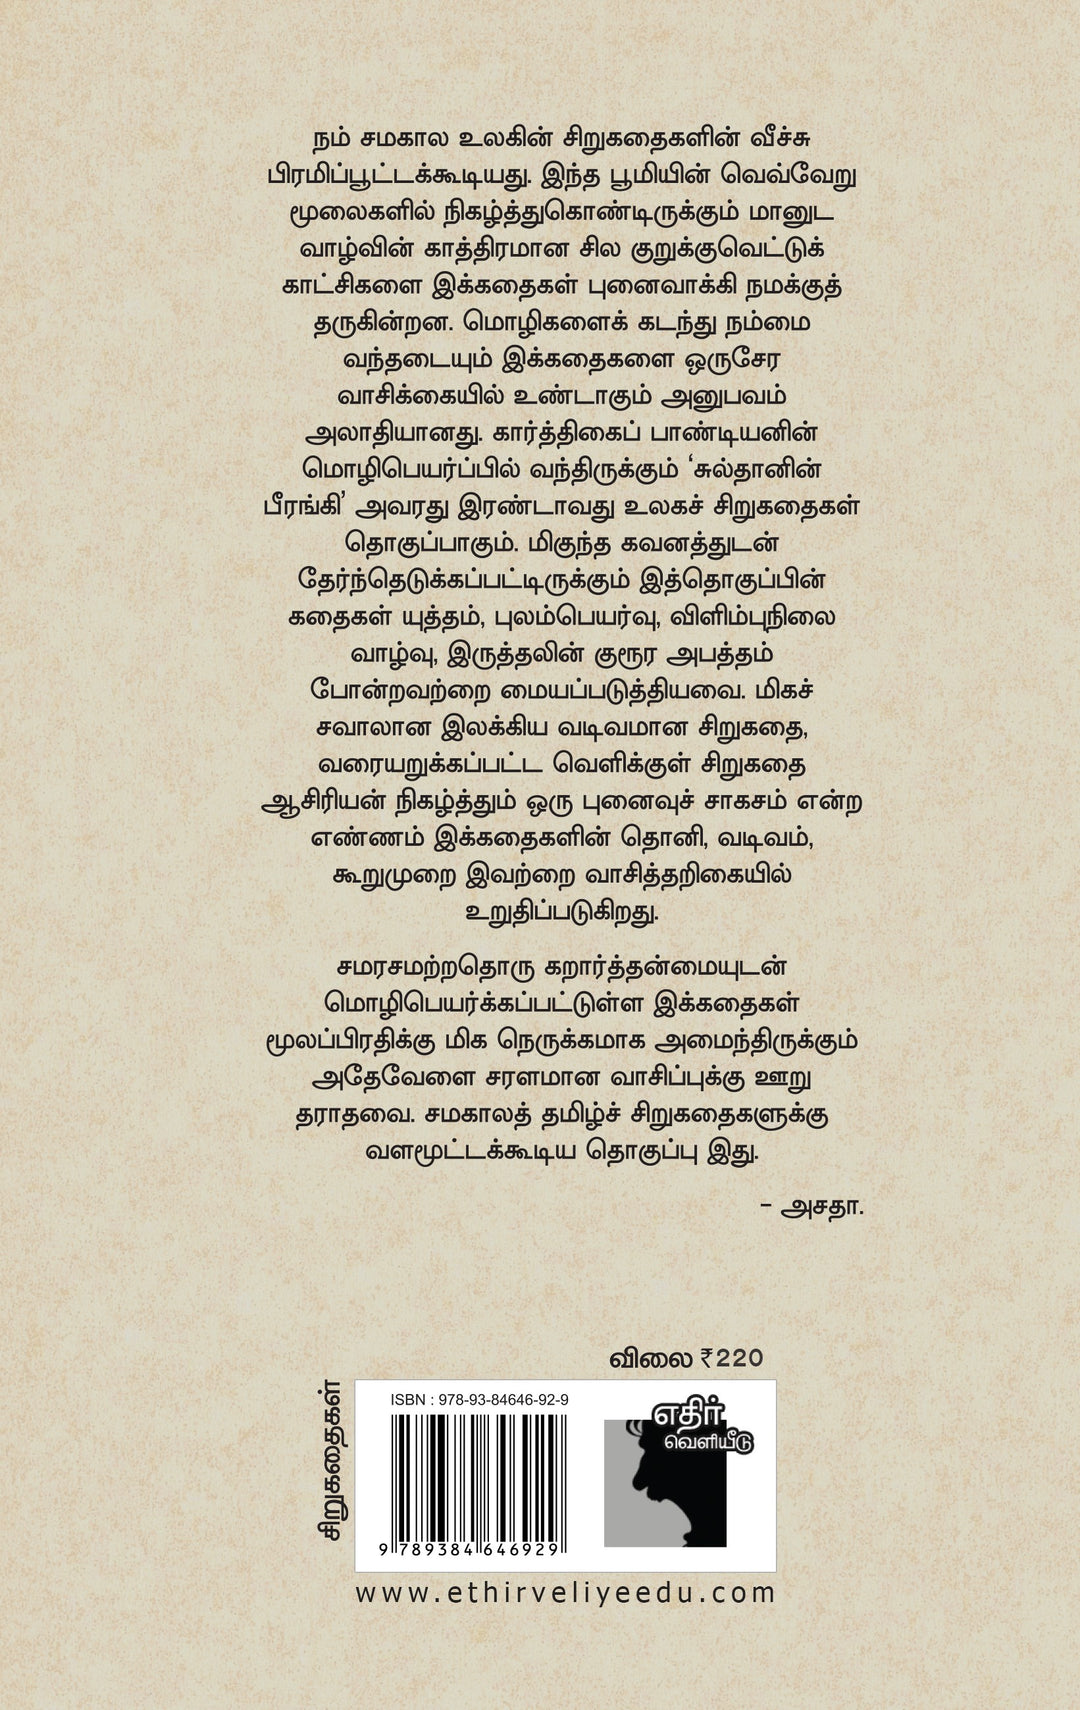 நம் சமகால உலகின் சிறுகதைகளின் வீச்சு
பிரமிப்பூட்டக்கூடியது. இந்த பூமியின் வெவ்வேறு
மூலைகளில் நிகழ்த்துகொண்டிருக்கும் மானுட
வாழ்வின் காத்திரமான சில குறுக்குவெட்டுக்
காட்சிகளை இக்கதைகள் புனைவாக்கி நமக்குத்
தருகின்றன. மொழிகளைக் கடந்து நம்மை
வந்தடையும் இக்கதைகளை ஒருசேர
வாசிக்கையில் உண்டாகும் அனுபவம்
அலாதியானது. கார்த்திகைப் பாண்டியனின்
மொழிபெயர்ப்பில் வந்திருக்கும் ‘சுல்தானின்
பீரங்கி’ அவரது இரண்டாவது உலகச் சிறுகதைகள்
தொகுப்பாகும். மிகுந்த கவனத்துடன்
தேர்ந்தெடுக்கப்பட்டிருக்கும் இத்தொகுப்பின்
கதைகள் யுத்தம், புலம்பெயர்வு, விளிம்புநிலை
வாழ்வு, இருத்தலின் குரூர அபத்தம்
போன்றவற்றை மையப்படுத்தியவை. மிகச்
சவாலான இலக்கிய வடிவமான சிறுகதை,
வரையறுக்கப்பட்ட வெளிக்குள் சிறுகதை
ஆசிரியன் நிகழ்த்தும் ஒரு புனைவுச் சாகசம் என்ற
எண்ணம் இக்கதைகளின் தொனி, வடிவம்,
கூறுமுறை இவற்றை வாசித்தறிகையில்
உறுதிப்படுகிறது.
சமரசமற்றதொரு கறார்த்தன்மையுடன்
மொழிபெயர்க்கப்பட்டுள்ள இக்கதைகள்
மூலப்பிரதிக்கு மிக நெருக்கமாக அமைந்திருக்கும்
அதேவேளை சரளமான வாசிப்புக்கு ஊறு
தராதவை. சமகாலத் தமிழ்ச் சிறுகதைகளுக்கு
வளமூட்டக்கூடிய தொகுப்பு இது.
– அசதா.
விலை ₹220
சிறுகதைகள்
ISBN : 978-93-84646-92-9
எதிர்
வெளியீடு
9 789384 646929
www.ethirveliyeedu.com